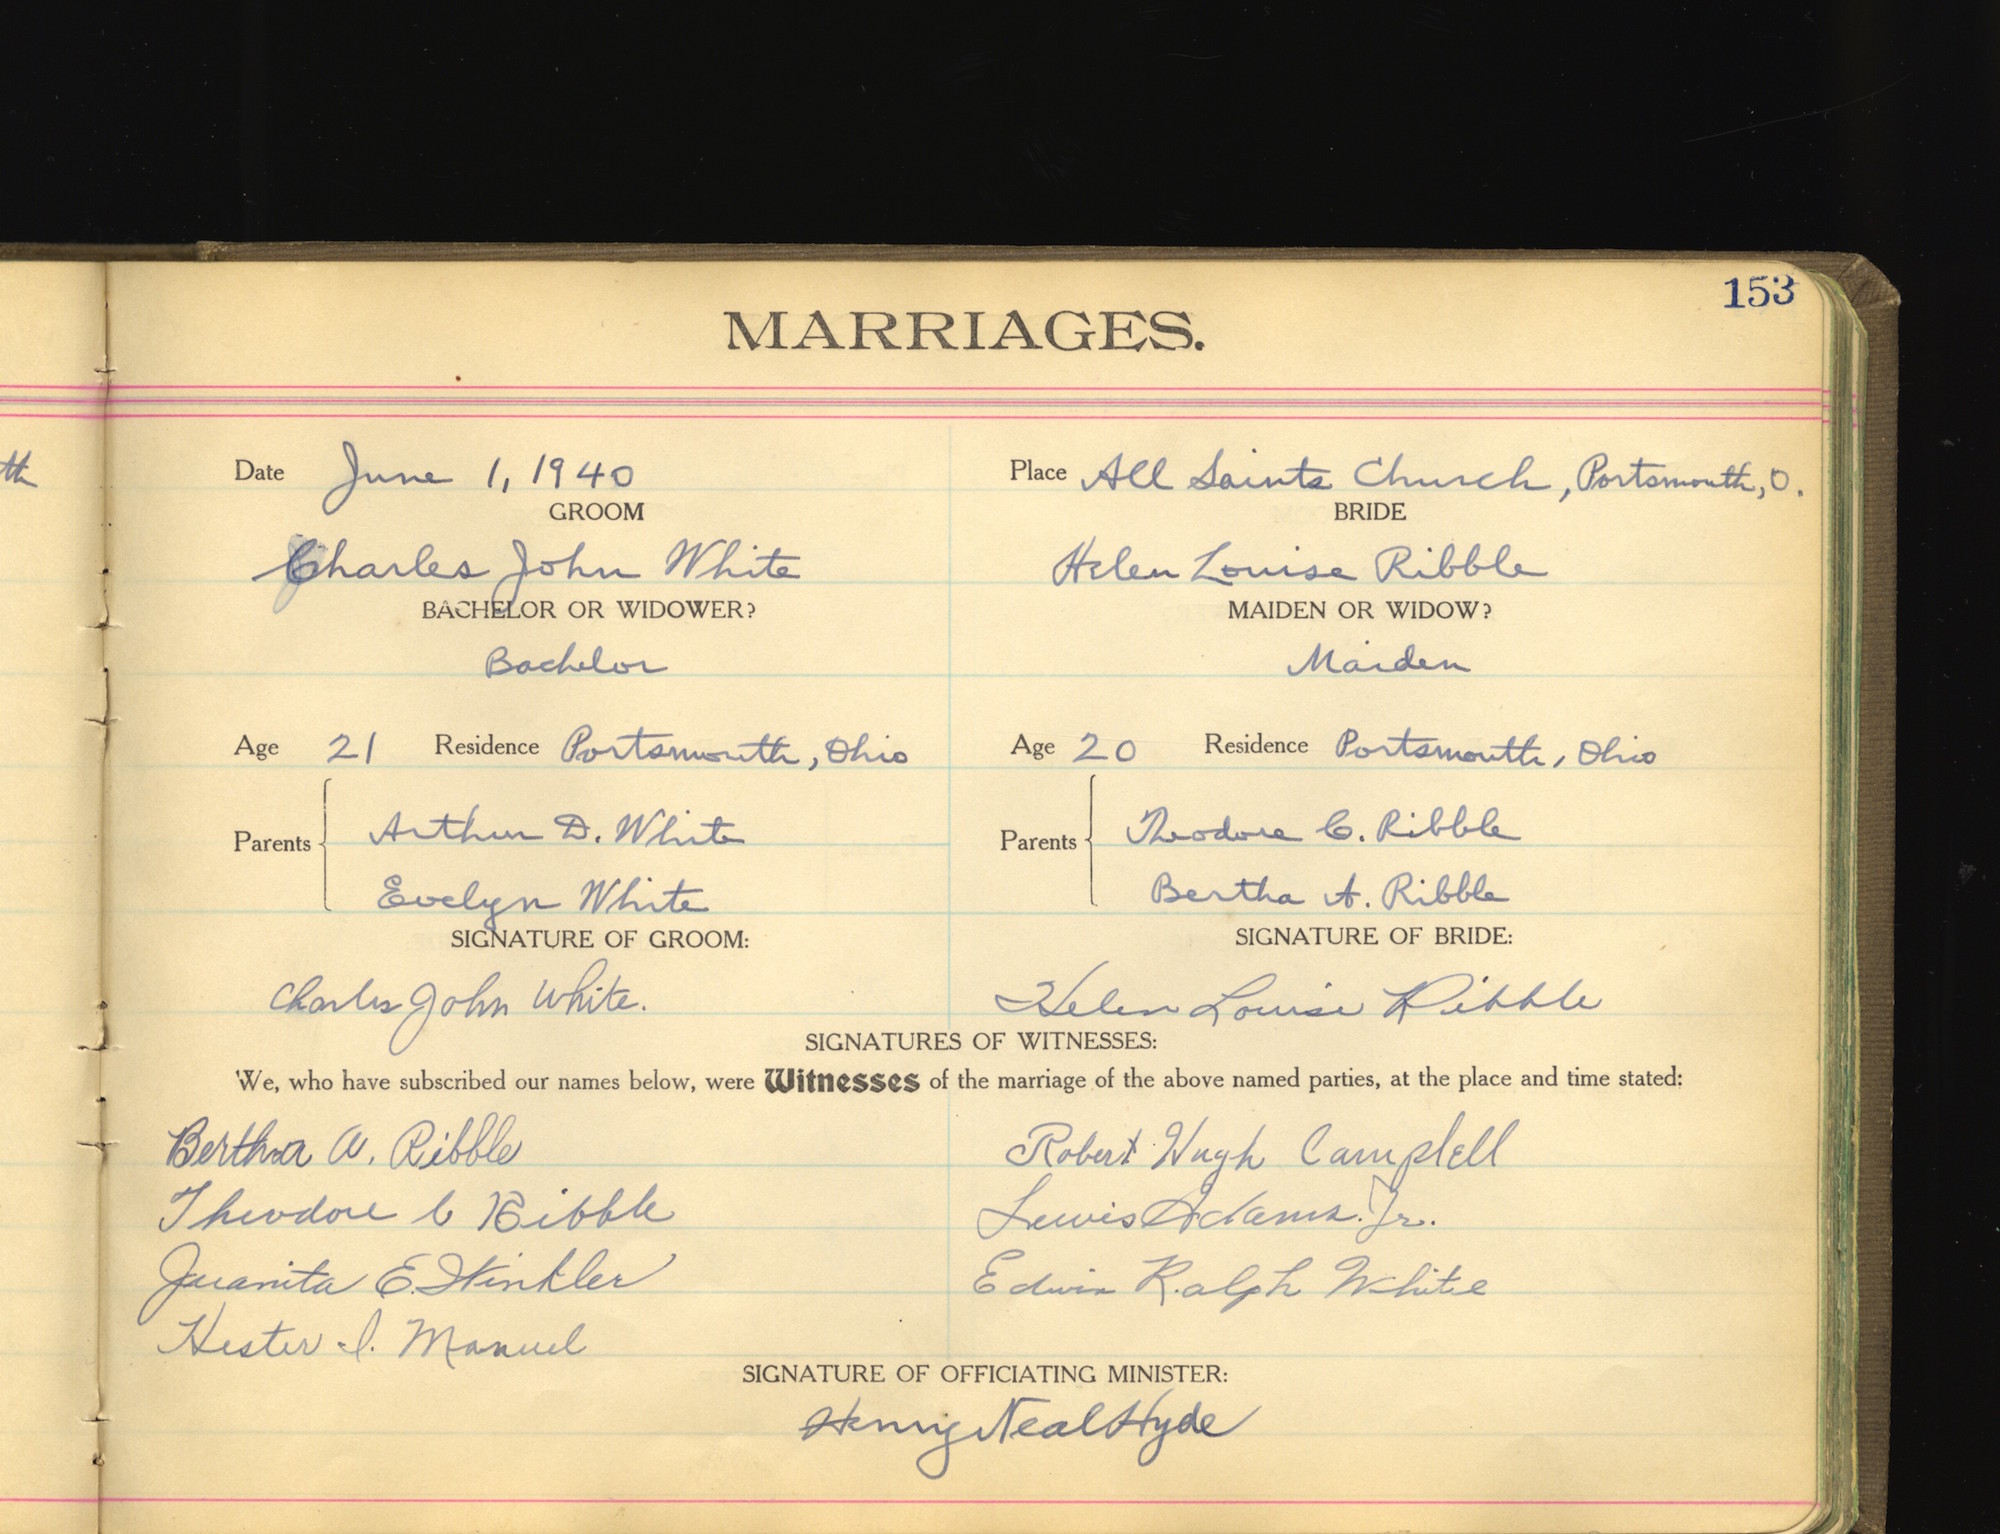 153
MARRIAGES.
th
Date June 1, 1940 Place All Saints Church, Portsmouth, O.
GROOM BRIDE
Charles John White Helen Louise Ribble
BACHELOR OR WIDOWER? MAIDEN OR WIDOW?
Bachelor Maiden
Age 21 Residence Portsmouth, Ohio Age 20 Residence Portsmouth, Ohio
Parents Arthur D. White Parents Theodore C. Ribble
Evelyn White Bertha A. Ribble
SIGNATURE OF GROOM: SIGNATURE OF BRIDE:
Charles John White. Helen Louise Ribble
SIGNATURES OF WITNESSES:
We, who have subscribed our names below, were Witnesses of the marriage of the above named parties, at the place and time stated:
Bertha A. Ribble Robert Hugh Campbell
Theodore C Ribble Lewis Adams. Jr.
Juanita E. Winkler Edwin Ralph White
Hester I. Manuel
SIGNATURE OF OFFICIATING MINISTER:
Henry Neal Hyde